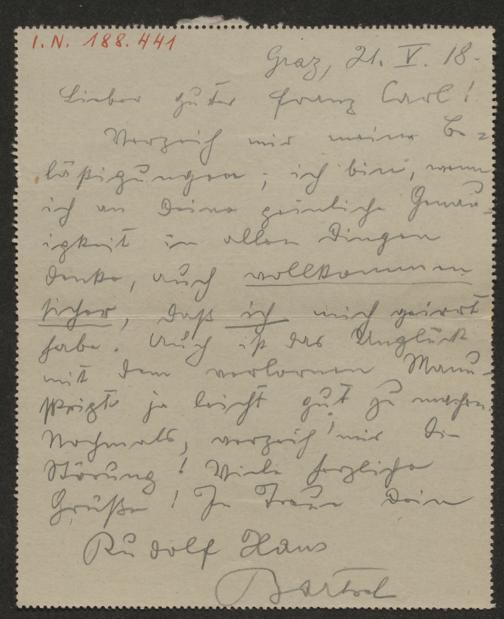 I. N. 188.441
Graz, 21. V. 18.
Lieber guter Franz Carl!
Verzeih mir meine Be=
läßigungen; ich bin, wenn
ich an Deine peinliche Genau=
igkeit in allen Dingen
denke, auch vollkommen
sicher, daß ich mich geirrt
habe. Auch ist das Unglück
mit dem verlornen Manu=
skript ja leicht gut zu machen.
Nochmals, verzeih' mir die
Störung! Viele herzliche
Grüße! In Treue Dein
Rudolf Hans
Bartsch